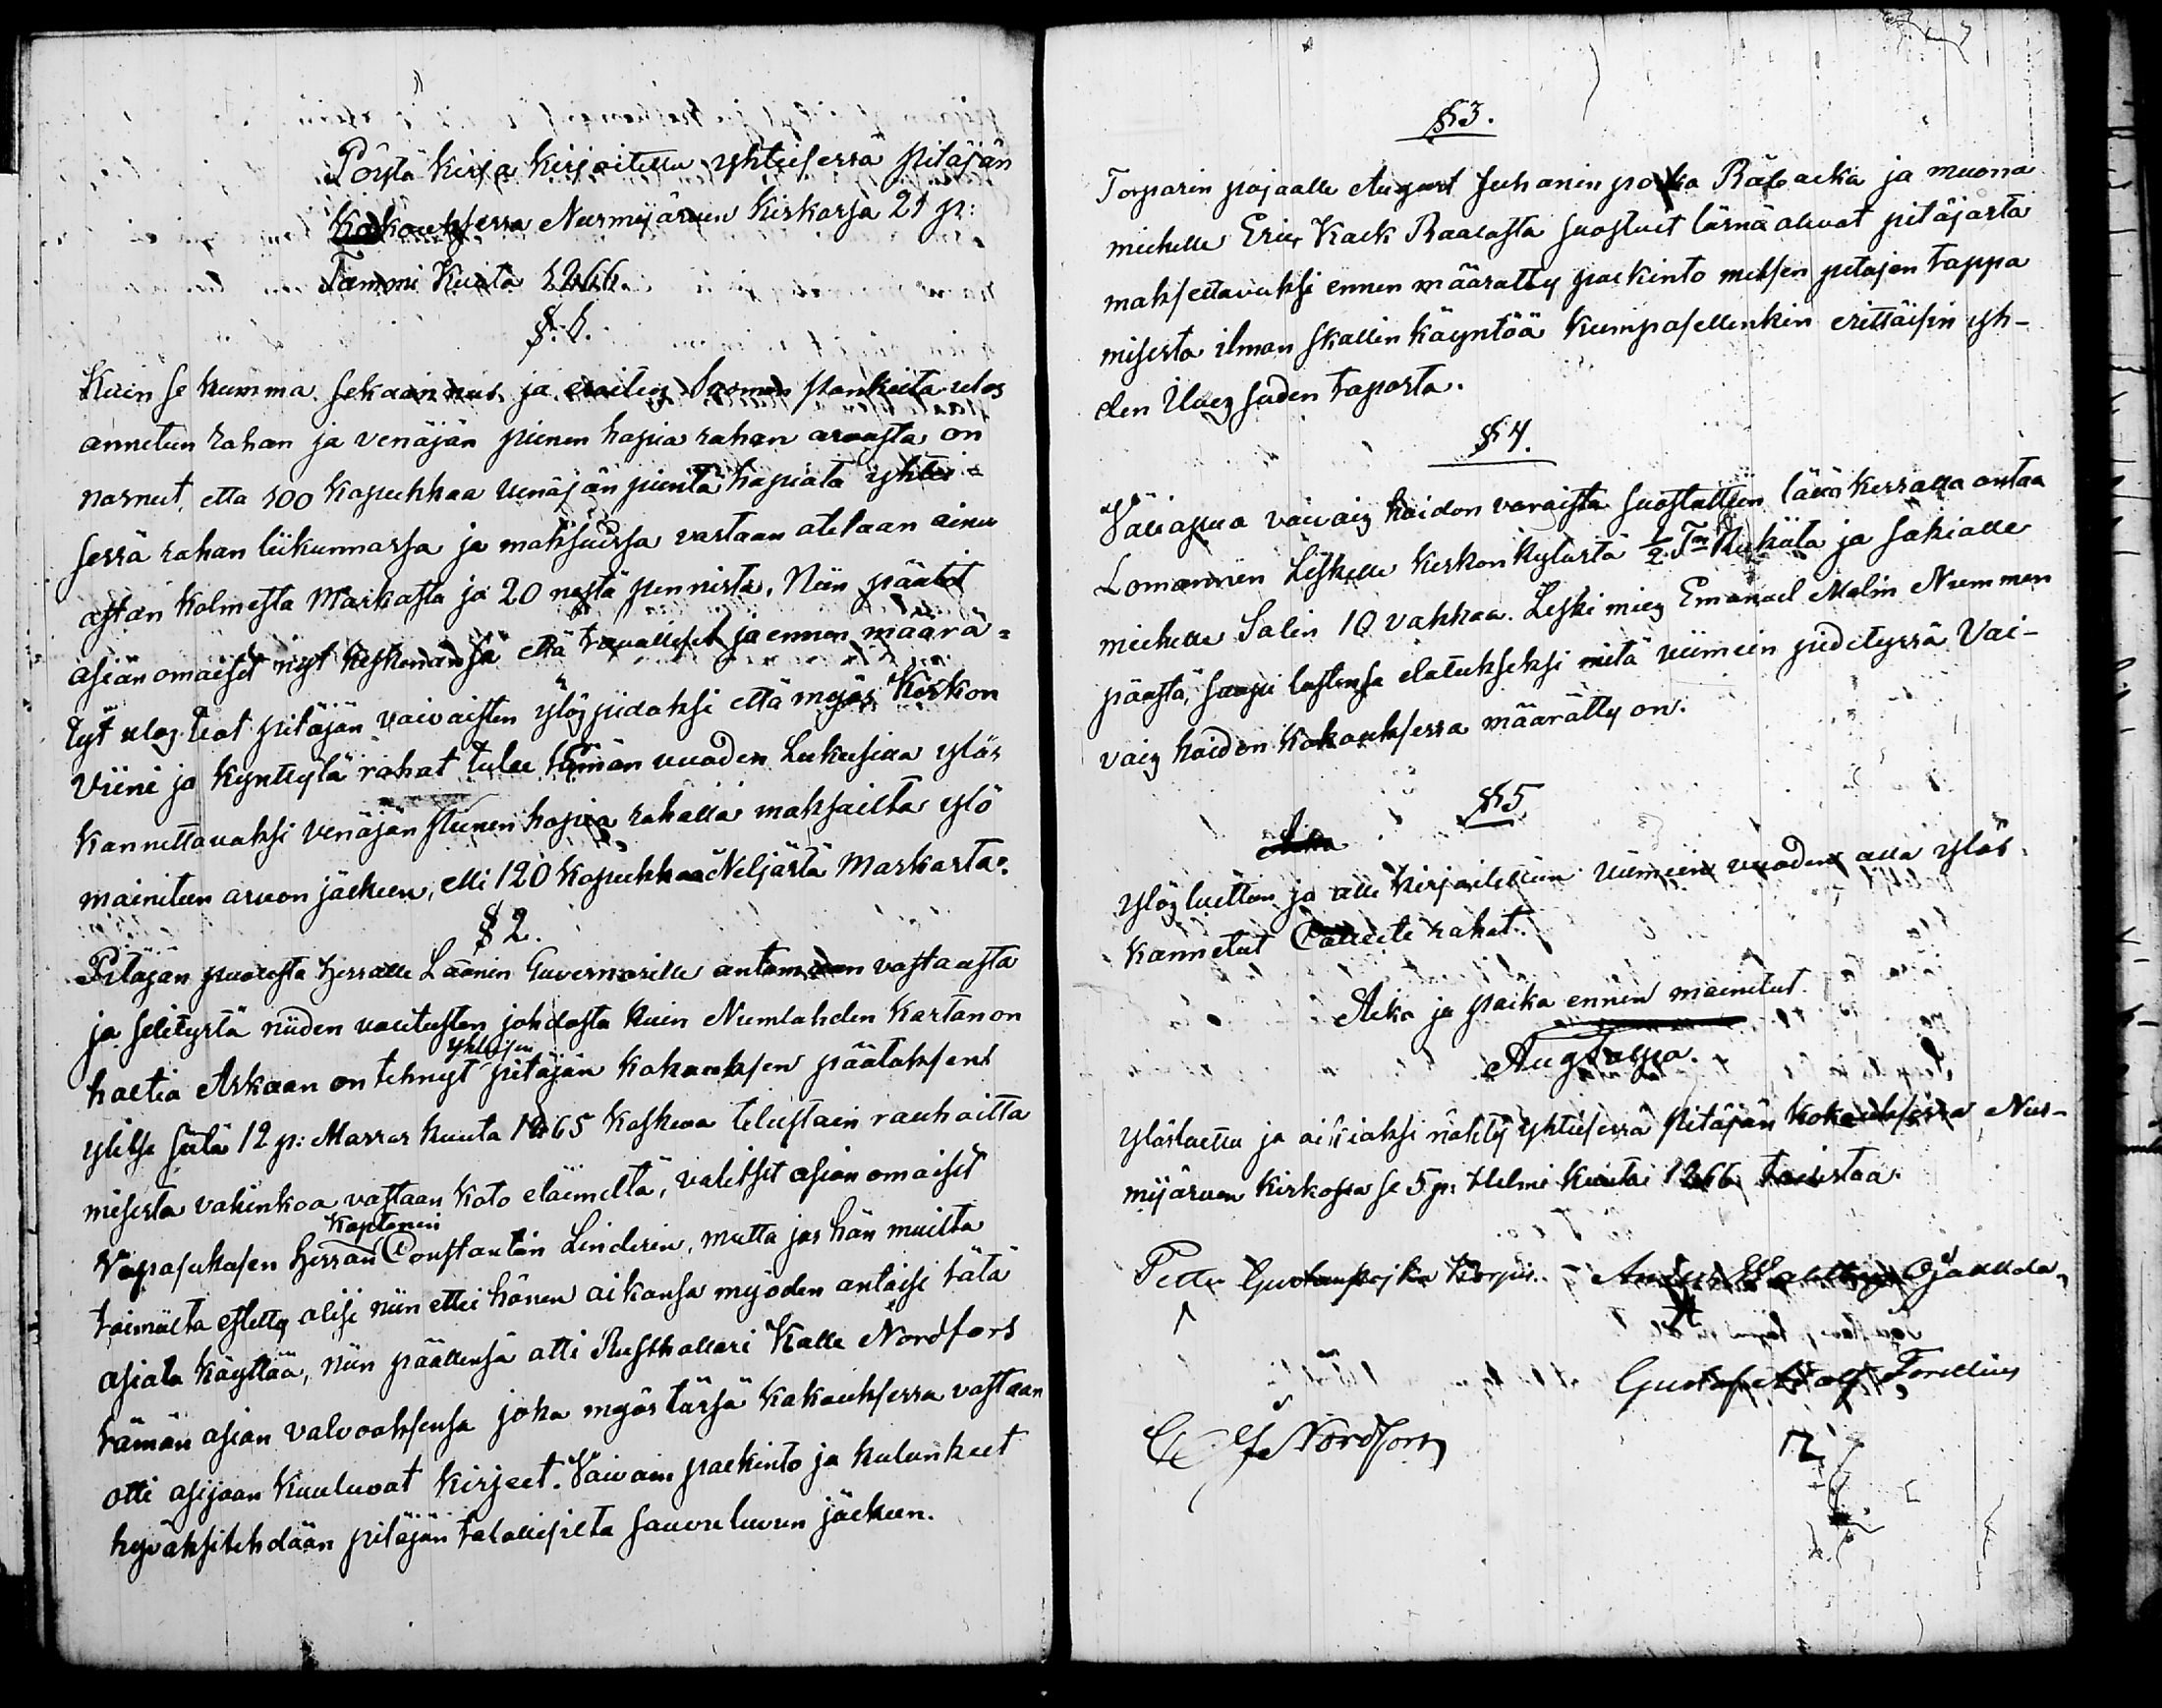 Pöytä kirja kirjoitettu yhteisessä pitäjän
kokouksessa Nurmijärven kirkossa 21 p:
Tammi kuuta 1866.
§. 1.
Kuin se summa sekaannus ja Suomen pankista ulos
annetun rahan ja venäjän pienen hopia rahan arvosta on
nosnut, etta 100 kopeekkaa venäjän pientä hopiata yhtei-
sessä rahan liikunnossa ja maksuissa vastaan otetaan ainu
astan kolmesta Markasta ja 20 nestä pennistä, Niin päätit
asian omaiset nyt keskenänsä että tavalliset ja ennen määrä-
tyt ulos teot pitäjän vaivaisten ylöz pidoksi että myös Kirkon
viini ja kynttylä rahat tulee tämän vuoden Lukusiaa ylös
kannettavaksi venäjän pienen hopia rahalla maksailta ylö
mainitun arvon jälkeen, elli 120 kopeekkaa Neljästä Markasta.
§ 2.
Pitäjän puolesta Herralle Läänin Guvernörille antamaan vastausta
ja selitystä niiden valitusten johdosta kuin Numlahden Kartanon
haltia Askaan on tehnyt yhteisen pitäjän kokouksen päätöksent
ylitse siitä 12 p: Marras kuuta 1865 koskeva teleistain rauhoitta
misesta vahinkoa vastaan koto eläimeltä, valitset asian omaiset
Vapasukusen Herran Kaptenin Constantin Linderin, mutta jos hän muilta
toimilta estetty olisi niin ettei hänen aikansa myöden antaisi tätä
asiata käyttää, niin päällensä otti Rusthollari Kalle Nordfors
tämän asian valvoaksensa joka myös tässä kokouksessa vastaan
otti asijaan kuuluvat kirjeet. Vaivain palkinto ja kulunkeet
hyväksitehdään pitäjän talollisilta sauvu luvun jälkeen.
§ 3.
Torparin pojaalle August Juhanin poika Rälaska ja muona
miehelle Eric Kack Raalasta suostuit läsnä olevat pitäjästä
maksettavaksi ennen määrätty palkinto metsen petojen tappa
misesta ilman skallin käyntöä kumpasellenkin erittäisin yh-
den Ulvez suden taposta.
§ 4.
Väliapua vaivaiz hoidon varoista suostuttiin läkäkerralla antaa
Lomannin Leskelle kirkon kylästä ½ Tn Rukiita ja sokialle
miehelle Salin 10 vakkaa. Leski miez Emanuel Malin Nummen
päästä, saapi lastensa elatukseksi mitä viimein pidetyssä Vai-
vaiz hoidon kokouksessa määrätty on.
§ 5
ylöz luettiin ja alle kirjoitettiin viimein vuoden alla ylös
kannetut Collecte rahat.
Aika ja paikka ennen mainitut
Aug Talpa.
ylösluettu ja oikiaksi nähty yhteisessä Pitäjän kokouksessa Nur-
mijärven kirkossa se 5 p: Helmi kuuta 1866 todistaa.
Petter Gustavspoika Korpis
Ojakkala
Gustaf Adolf Forellius
Nordfors